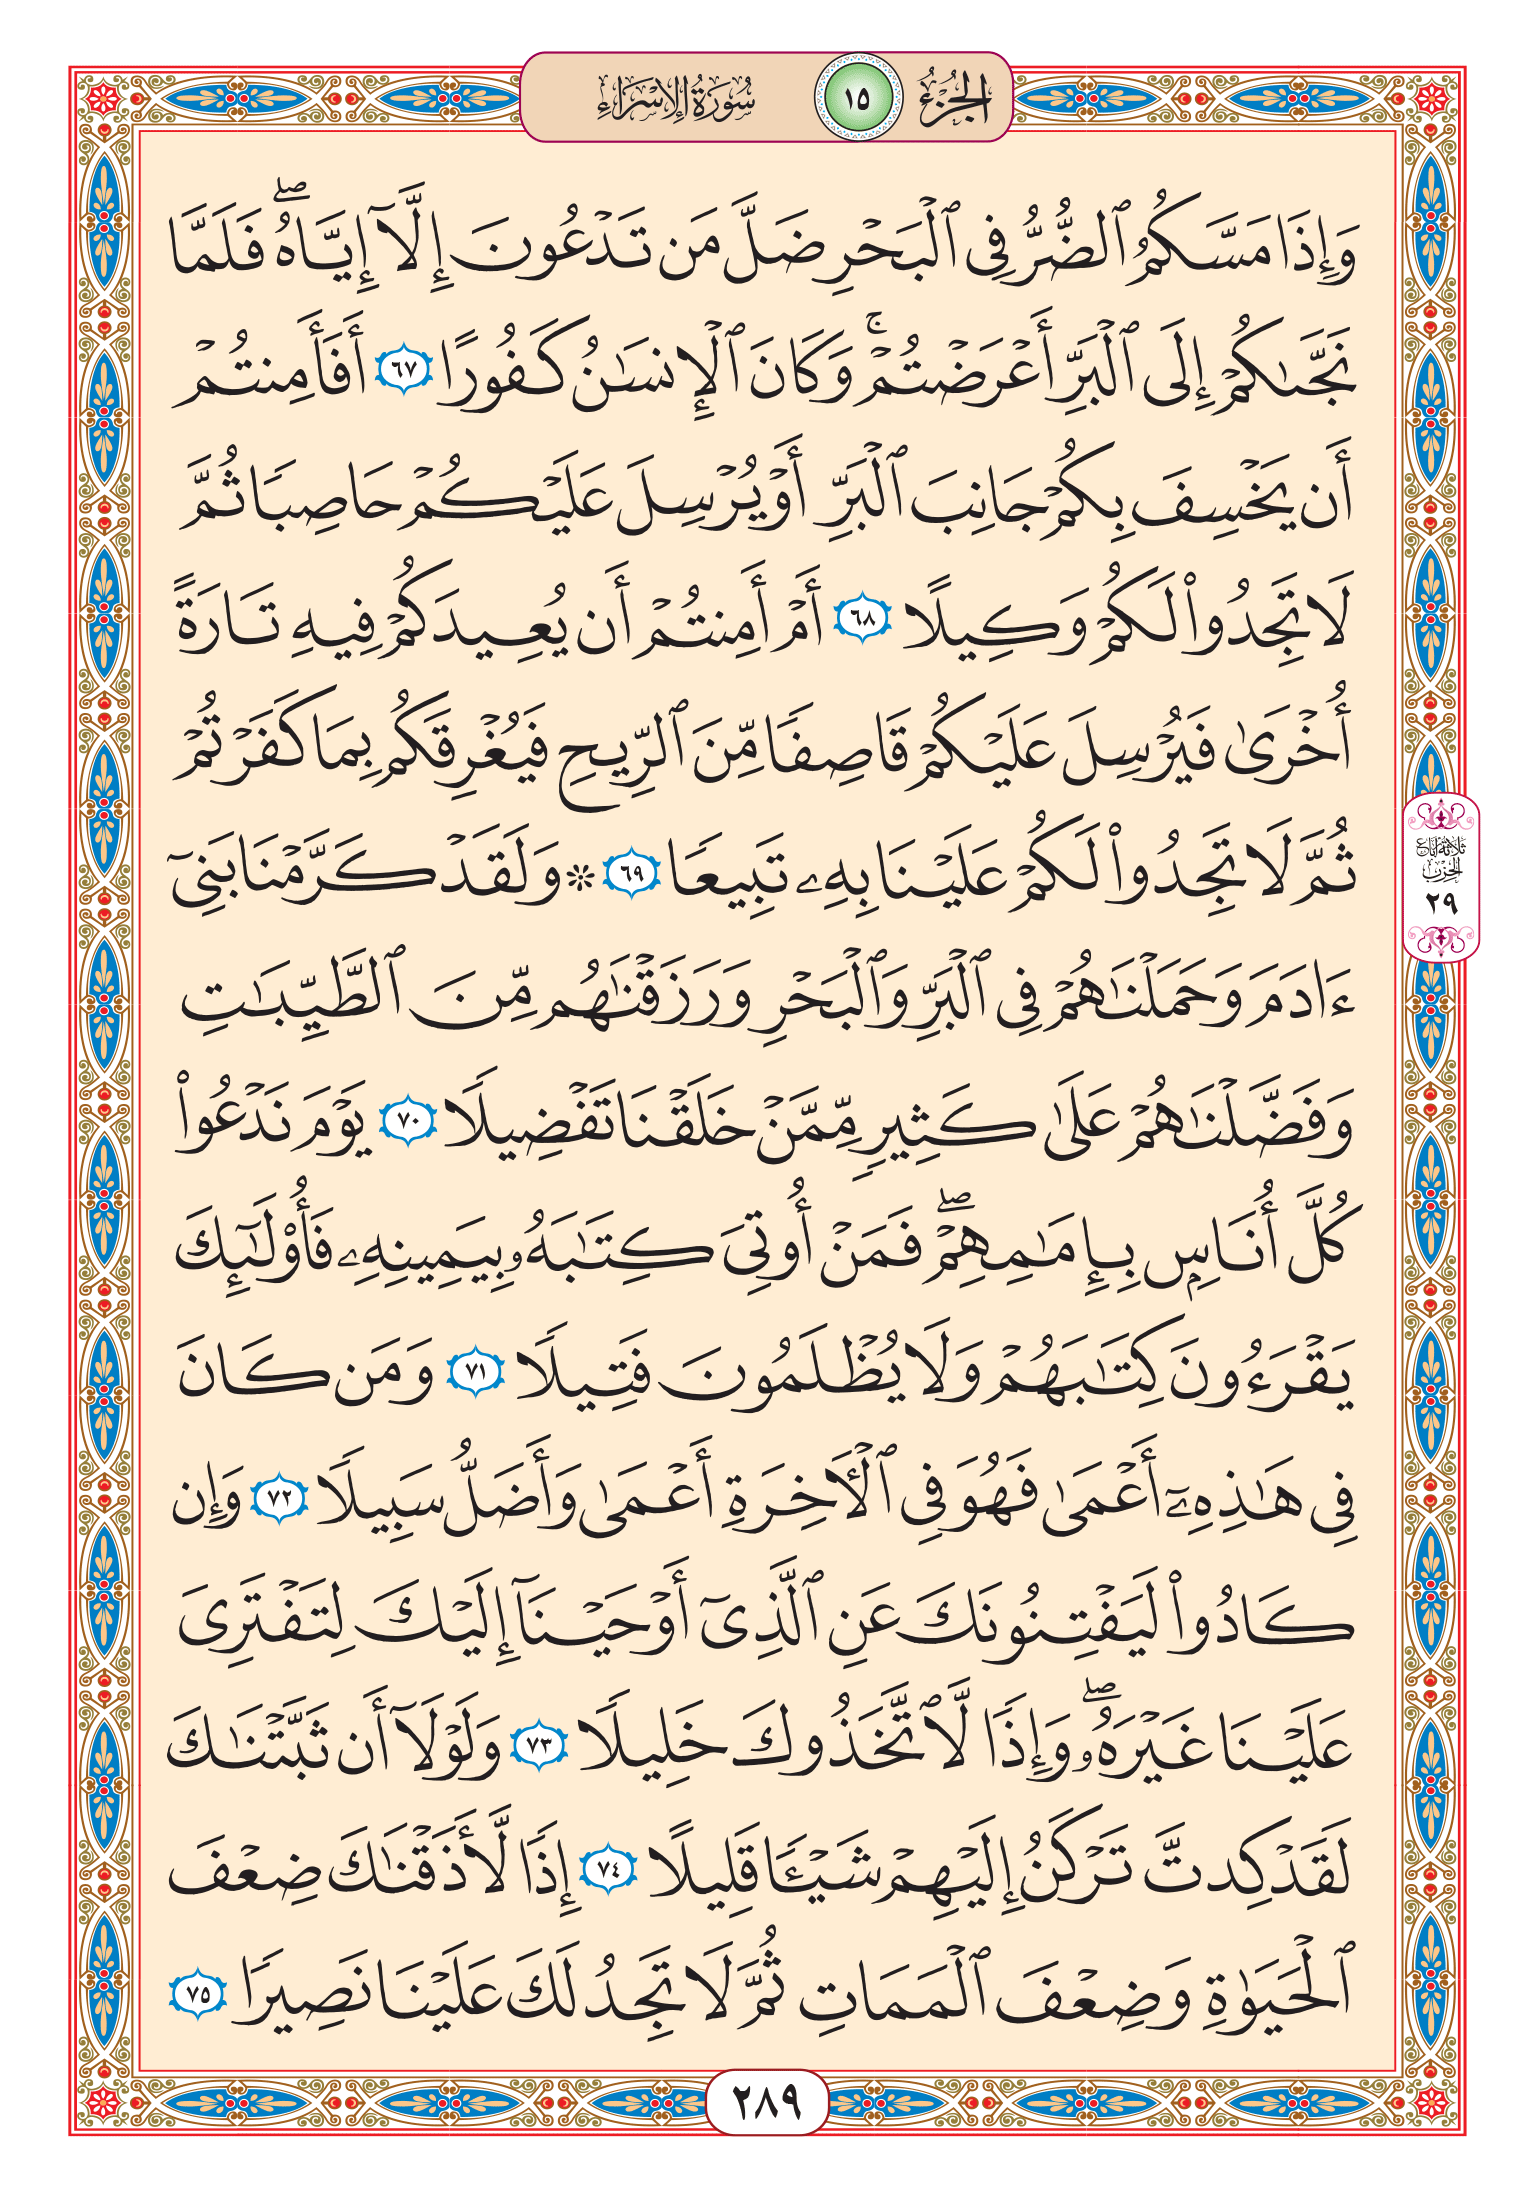 الجزء ١٥ سورة الإسراء
وَإِذَا مَسَّكُمُ ٱلضُّرُّ فِي ٱلْبَحْرِ ضَلَّ مَن تَدْعُونَ إِلَّآ إِيَّاهُۖ فَلَمَّا
نَجَّىٰكُمْ إِلَى ٱلْبَرِّ أَعْرَضْتُمْۚ وَكَانَ ٱلْإِنسَٰنُ كَفُورًا ٦٧ أَفَأَمِنتُمْ
أَن يَخْسِفَ بِكُمْ جَانِبَ ٱلْبَرِّ أَوْ يُرْسِلَ عَلَيْكُمْ حَاصِبًا ثُمَّ
لَا تَجِدُوا۟ لَكُمْ وَكِيلًا ٦٨ أَمْ أَمِنتُمْ أَن يُعِيدَكُمْ فِيهِ تَارَةً
أُخْرَىٰ فَيُرْسِلَ عَلَيْكُمْ قَاصِفًا مِّنَ ٱلرِّيحِ فَيُغْرِقَكُم بِمَا كَفَرْتُمْ
ثُمَّ لَا تَجِدُوا۟ لَكُمْ عَلَيْنَا بِهِۦ تَبِيعًا ٦٩ ۞ وَلَقَدْ كَرَّمْنَا بَنِىٓ
ءَادَمَ وَحَمَلْنَٰهُمْ فِي ٱلْبَرِّ وَٱلْبَحْرِ وَرَزَقْنَٰهُم مِّنَ ٱلطَّيِّبَٰتِ
وَفَضَّلْنَٰهُمْ عَلَىٰ كَثِيرٍ مِّمَّنْ خَلَقْنَا تَفْضِيلًا ٧٠ يَوْمَ نَدْعُوا۟
كُلَّ أُنَاسٍۭ بِإِمَٰمِهِمْۖ فَمَنْ أُوتِيَ كِتَٰبَهُۥ بِيَمِينِهِۦ فَأُو۟لَٰٓئِكَ
يَقْرَءُونَ كِتَٰبَهُمْ وَلَا يُظْلَمُونَ فَتِيلًا ٧١ وَمَن كَانَ
فِي هَٰذِهِۦٓ أَعْمَىٰ فَهُوَ فِي ٱلْءَاخِرَةِ أَعْمَىٰ وَأَضَلُّ سَبِيلًا ٧٢ وَإِن
كَادُوا۟ لَيَفْتِنُونَكَ عَنِ ٱلَّذِىٓ أَوْحَيْنَآ إِلَيْكَ لِتَفْتَرِىَ
عَلَيْنَا غَيْرَهُۥۖ وَإِذًا لَّٱتَّخَذُوكَ خَلِيلًا ٧٣ وَلَوْلَآ أَن ثَبَّتْنَٰكَ
لَقَدْ كِدتَّ تَرْكَنُ إِلَيْهِمْ شَيْـًٔا قَلِيلًا ٧٤ إِذًا لَّأَذَقْنَٰكَ ضِعْفَ
ٱلْحَيَوٰةِ وَضِعْفَ ٱلْمَمَاتِ ثُمَّ لَا تَجِدُ لَكَ عَلَيْنَا نَصِيرًا ٧٥
ثلاثة أرباع
الحزب
٢٩
٢٨٩